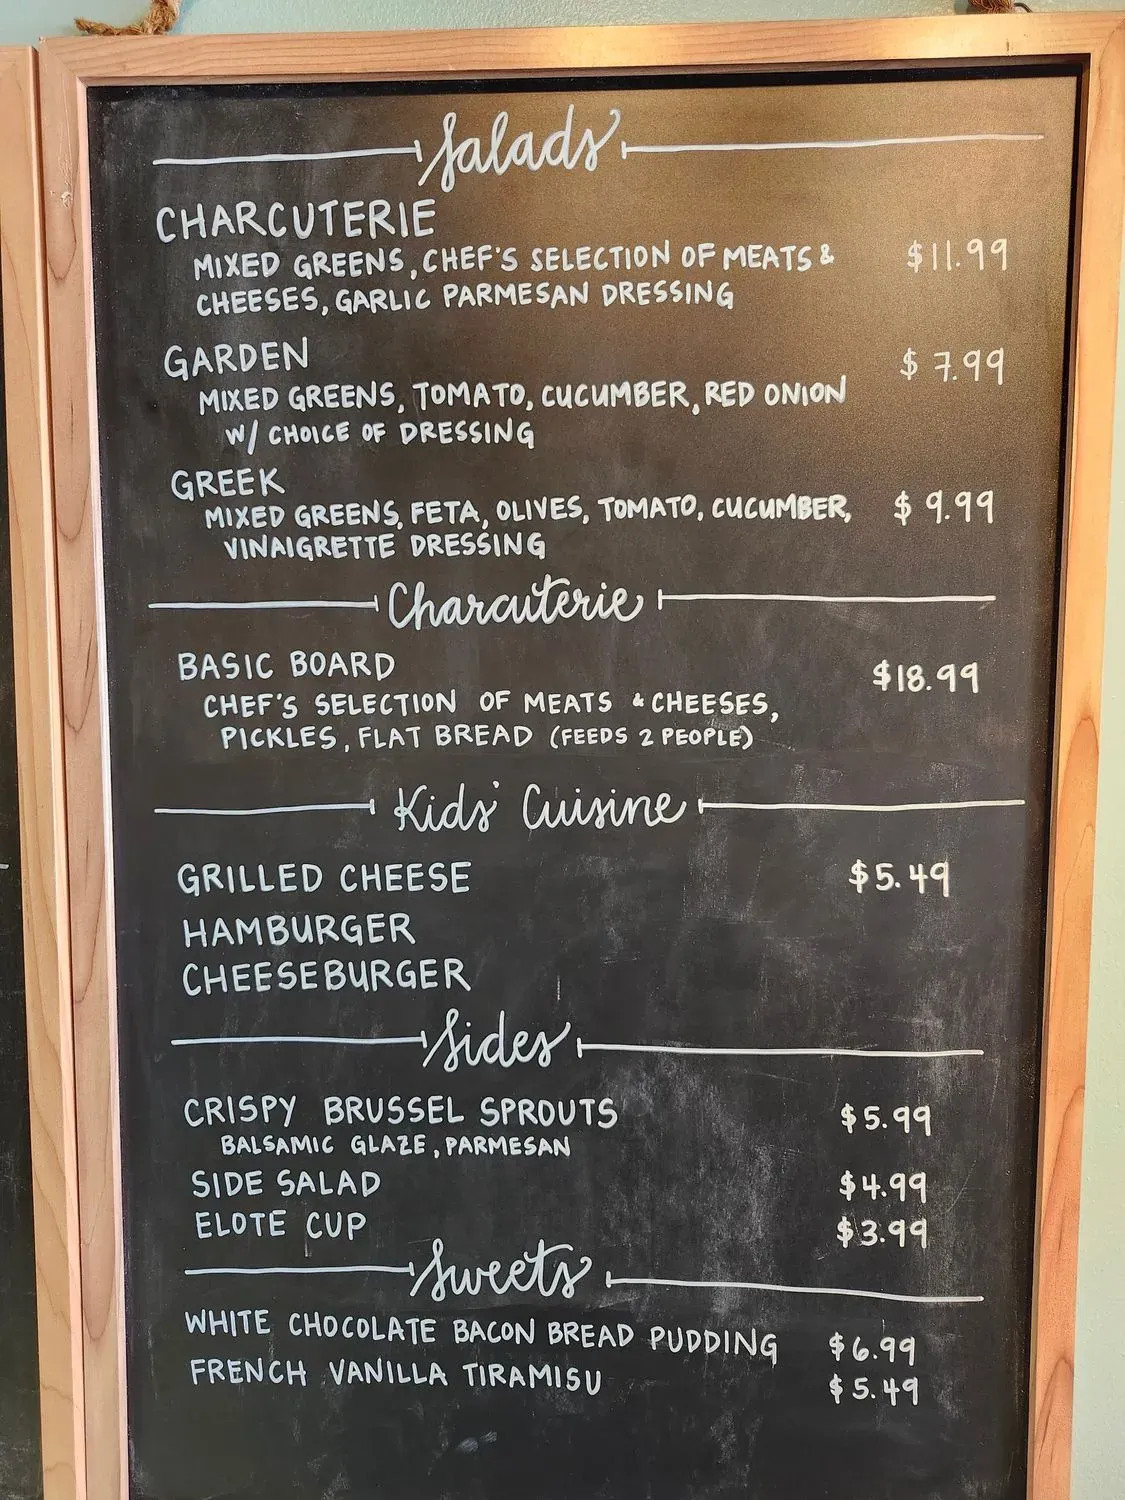 Salads
CHARCUTERIE
MIXED GREENS, CHEF'S SELECTION OF MEATS & $11.99
CHEESES, GARLIC PARMESAN DRESSING
GARDEN $7.99
MIXED GREENS, TOMATO, CUCUMBER, RED ONION
W/ CHOICE OF DRESSING
GREEK
MIXED GREENS, FETA, OLIVES, TOMATO, CUCUMBER, $9.99
VINAIGRETTE DRESSING
Charcuterie
BASIC BOARD $18.99
CHEF'S SELECTION OF MEATS & CHEESES,
PICKLES, FLAT BREAD (FEEDS 2 PEOPLE)
Kids' Cuisine
GRILLED CHEESE $5.49
HAMBURGER
CHEESEBURGER
Sides
CRISPY BRUSSEL SPROUTS $5.99
BALSAMIC GLAZE, PARMESAN
SIDE SALAD $4.99
ELOTE CUP $3.99
Sweets
WHITE CHOCOLATE BACON BREAD PUDDING $6.99
FRENCH VANILLA TIRAMISU $5.49